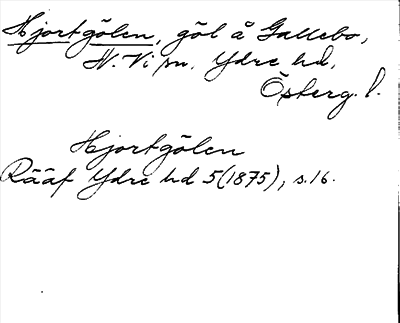 Hjortgölen, göl å Gallebo,
N. Vi sn. Ydre hd.
Österg. l.
Hjortgölen
Rääf Ydre hd 5 (1875), s. 16.